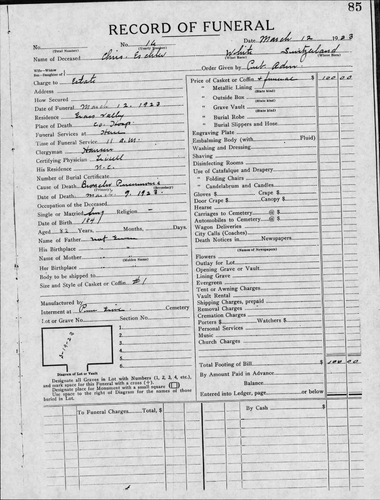 85
RECORD OF FUNERAL
No. No. 14 Date March 12, 1923
(Total Number) (Yearly Number)
Name of Deceased Chris White Switzerland
(What Race) (Where Born)
Order Given by Pub Adm
Charge to Estate
Address
How Secured
Date of Funeral March 12. 1923
Residence Grass Valley
Place of Death Co. Hosp
Funeral Services at Here
Time of Funeral Service 11 A.M.
Clergyman
Certifying Physician
His Residence N.C.
Number of Burial Certificate
Cause of Death Broncho Pneumonia
Date of Death Mar. 9. 1923.
Occupation of the Deceased
Single or Married Sing Religion
Date of Birth 1841
Aged 82 Years, Months, Days.
Name of Father
His Birthplace
Name of Mother
(Maiden Name)
Her Birthplace
Body to be shipped to
Size and Style of Casket or Coffin #1
Manufactured by
Interment at Cemetery
Lot or Grave No. Section No.
1.
2.
3.
4.
5.
6.
Diagram of Lot or Vault
Designate all Graves in Lot with Numbers (1, 2, 3, 4, etc.),
and mark space for this Funeral with a cross (+).
Designate place for Monument with a small square
Use space to the right of Diagram for the names of those
buried in Lot.
Price of Casket or Coffin + funeral $ 100 00
" Metallic Lining
(State kind)
" Outside Box
(State kind)
" Grave Vault
(State kind)
" Burial Robe
(State kind)
" Burial Slippers and Hose
Engraving Plate
Embalming Body (with Fluid)
Washing and Dressing
Shaving
Disinfecting Rooms
Use of Catafalque and Drapery
" Folding Chairs
" Candelabrum and Candles
Gloves $ Crape $
Door Crape $ Canopy $
Hearse
Carriages to Cemetery @ $
Automobiles to Cemetery @ $
Wagon Deliveries
City Calls (Coaches)
Death Notices in Newspapers
(Names of Newspapers)
Flowers
Outlay for Lot
Opening Grave or Vault
Lining Grave
Evergreen
Tent or Awning Charges
Vault Rental
Shipping Charges, prepaid
Removal Charges
Cremation Charges
Porters $ Watchers $
Personal Services
Music
Church Charges
Total Footing of Bill $ 100 00
By Amount Paid in Advance
Balance
Entered into Ledger, page or below
To Funeral Charges, Total, $ By Cash $